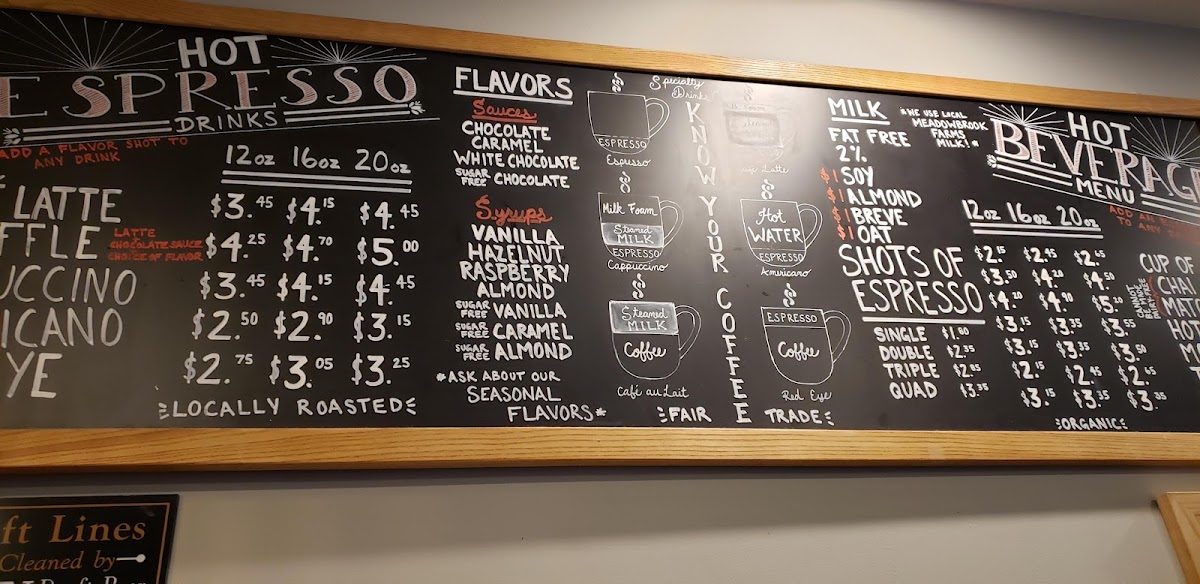 HOT
ESPRESSO
DRINKS
ADD A FLAVOR SHOT TO
ANY DRINK
12oz 16oz 20oz
LATTE $3.45 $4.15 $4.45
FFLE LATTE CHOCOLATE SAUCE CHOICE OF FLAVOR $4.25 $4.70 $5.00
UCCINO $3.45 $4.15 $4.45
ICANO $2.50 $2.90 $3.15
YE $2.75 $3.05 $3.25
LOCALLY ROASTED
FLAVORS
Sauces
CHOCOLATE
CARAMEL
WHITE CHOCOLATE
SUGAR FREE CHOCOLATE
Syrups
VANILLA
HAZELNUT
RASPBERRY
ALMOND
SUGAR FREE VANILLA
SUGAR FREE CARAMEL
SUGAR FREE ALMOND
*ASK ABOUT OUR
SEASONAL
FLAVORS*
Specialty
Drinks
KNOW YOUR COFFEE
ESPRESSO
Espresso
Latte
Milk Foam
Steamed
MILK
ESPRESSO
Cappuccino
Hot
WATER
ESPRESSO
Americano
Steamed
MILK
Coffee
Café au Lait
ESPRESSO
Coffee
Red Eye
FAIR TRADE
MILK
*WE USE LOCAL
MEADOWBROOK
FARMS
MILK!*
FAT FREE
2%
$1 SOY
$1 ALMOND
$1 BREVE
$1 OAT
SHOTS OF
ESPRESSO
SINGLE $1.80
DOUBLE $2.35
TRIPLE $2.85
QUAD $3.35
HOT
BEVERAGE
MENU
ADD AN
TO ANY
12oz 16oz 20oz
$2.15 $2.45 $2.65 CUP OF
$3.50 $4.20 $4.50 CHAI
$4.20 $4.90 $5.20 MAT
$3.15 $3.35 $3.55 HO
$3.15 $3.35 $3.50
$2.15 $2.45 $2.65
$3.15 $3.35
ORGANIC
ft Lines
Cleaned by